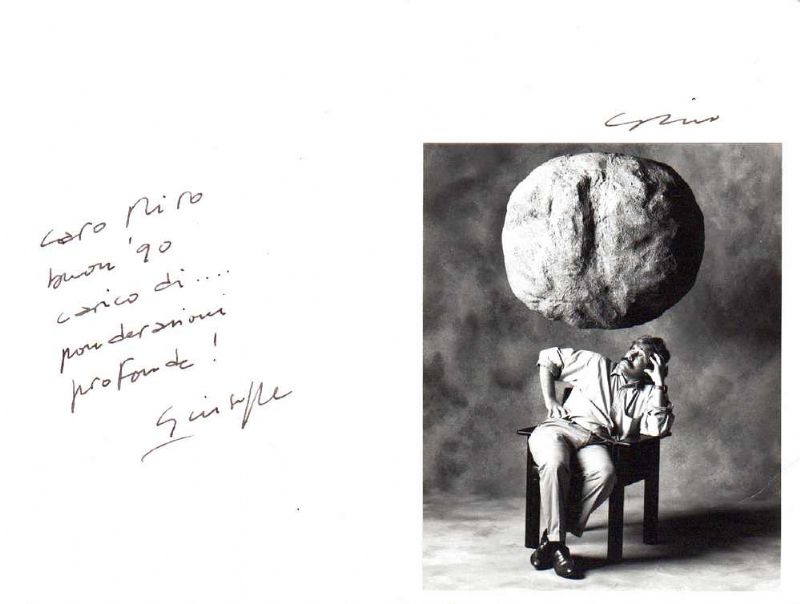 caro Miro
buon '90
carico di....
ponderazioni
profonde!
Giuseppe